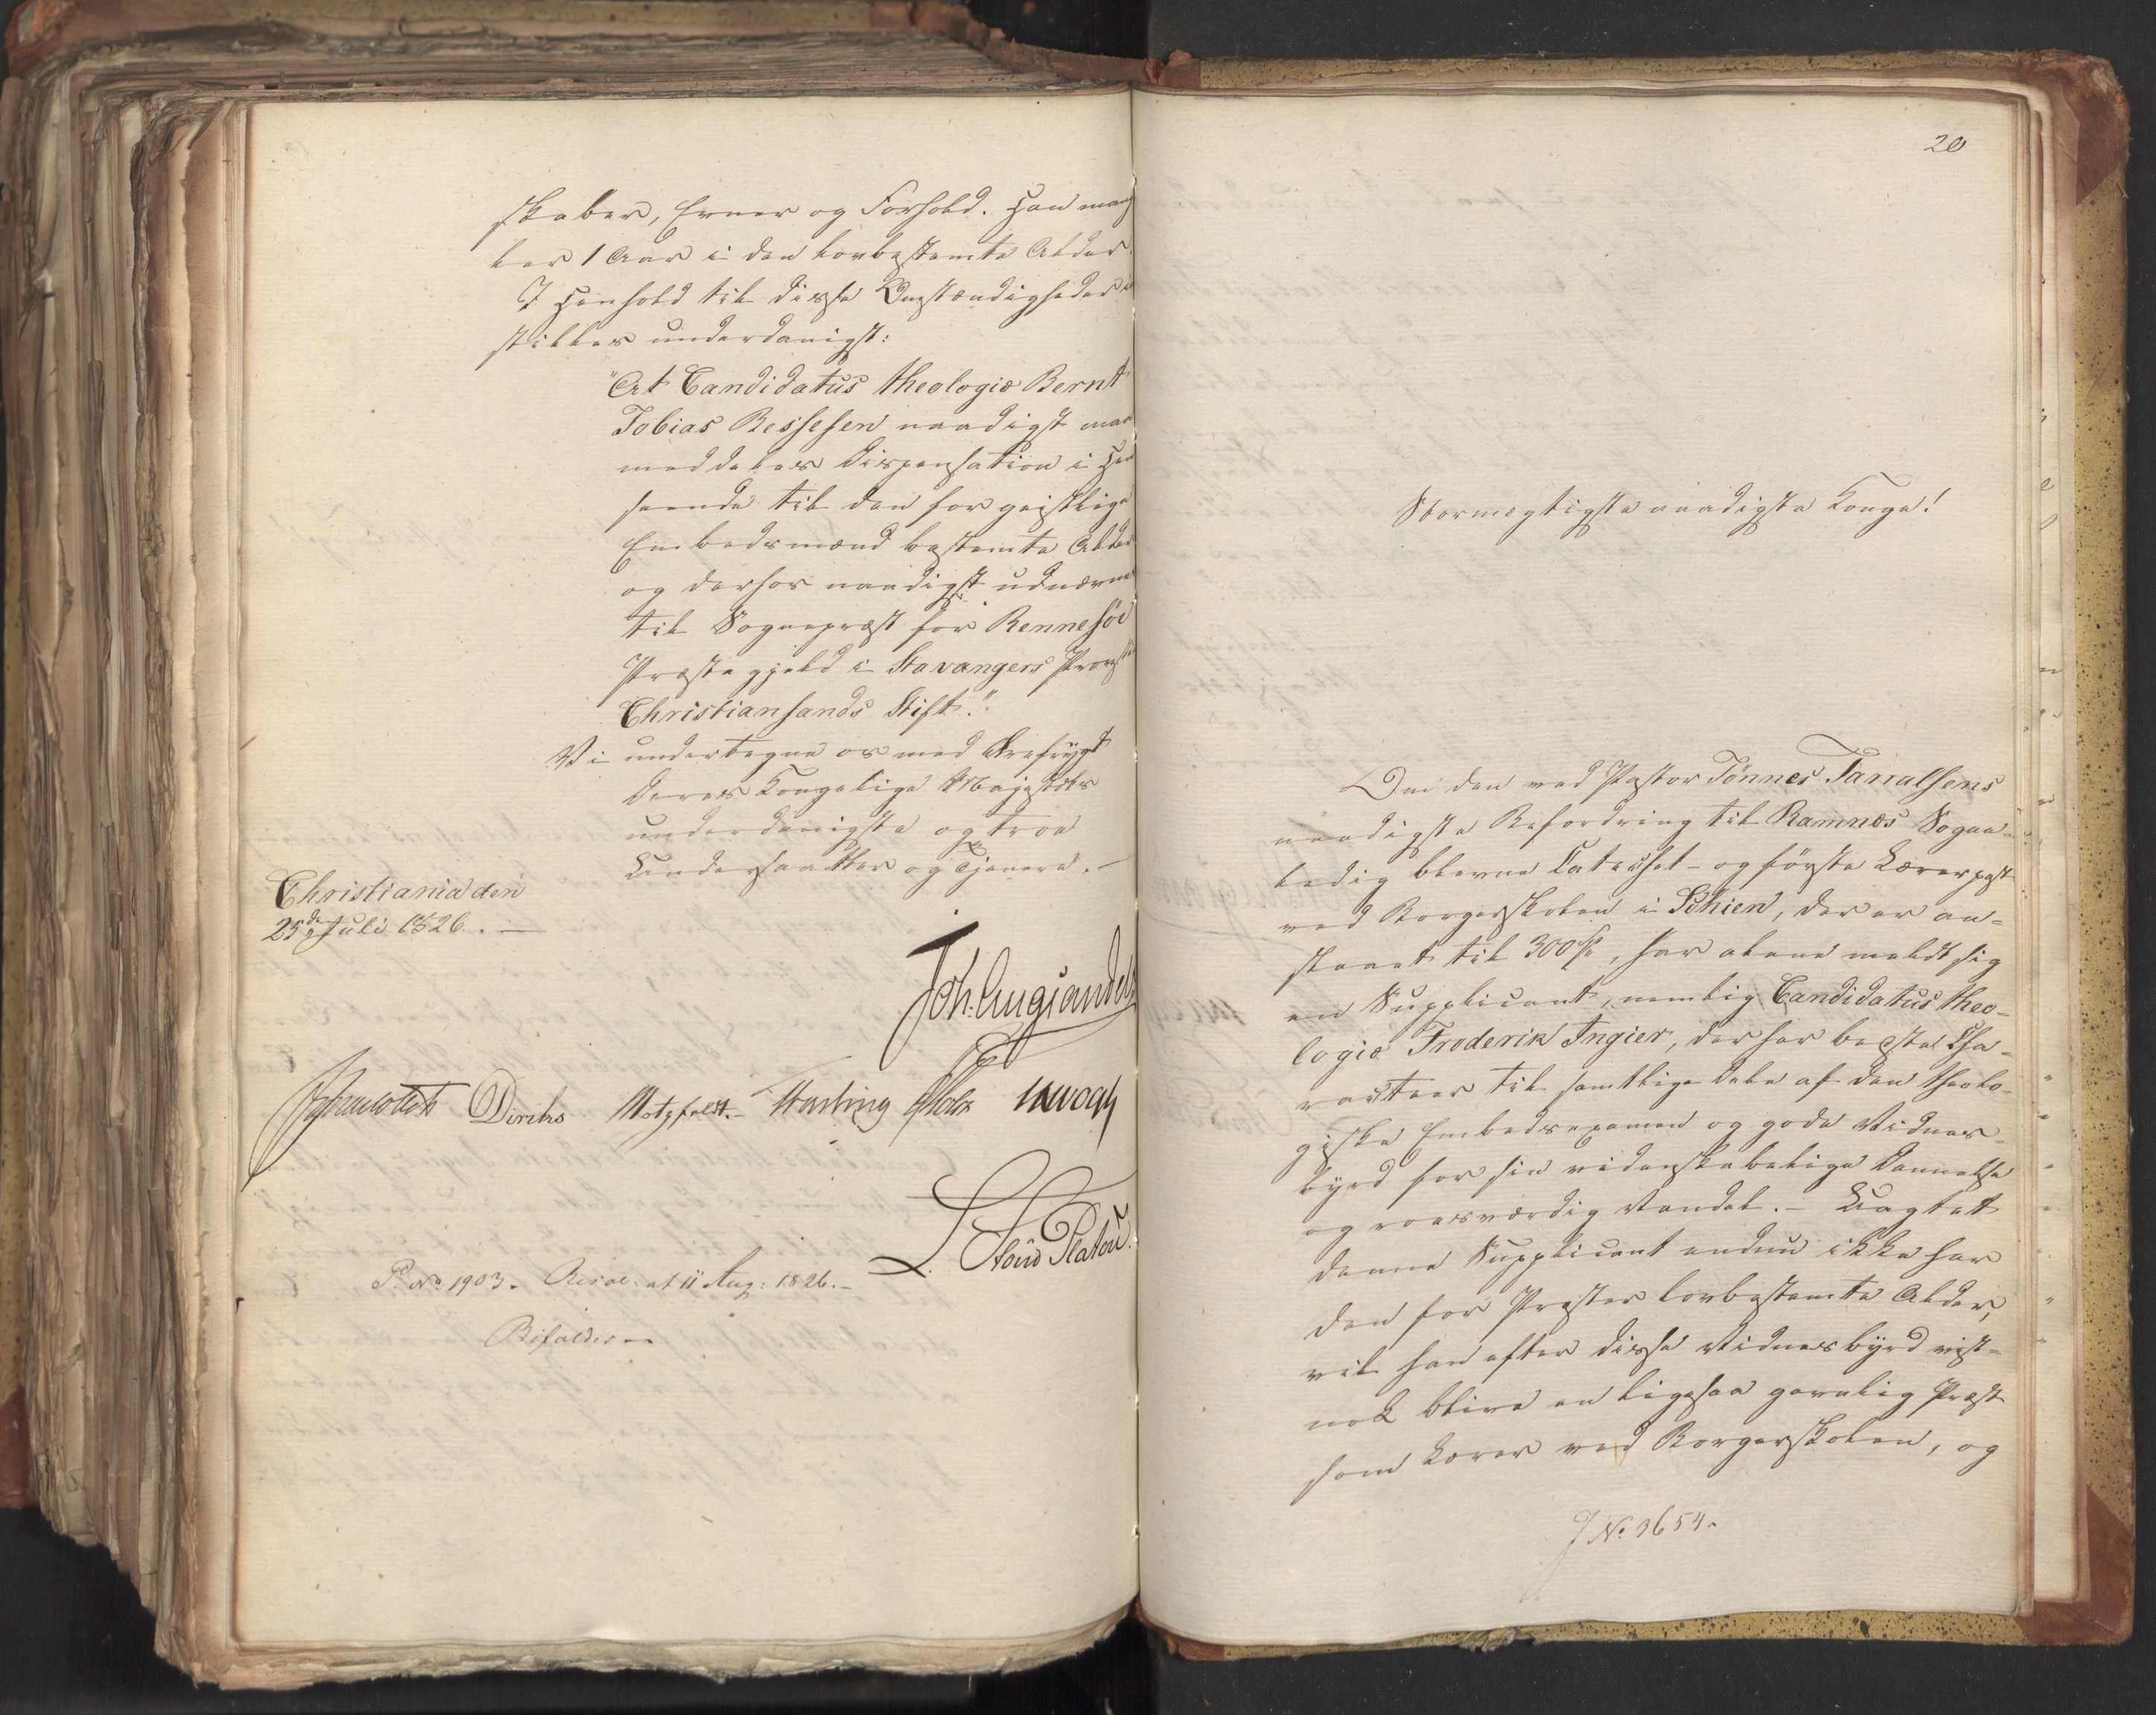 skaber, Evner og Forhold. Han mang
ler 1 Aar i den lovbestemte Alder.
I Henhold til disse Omstændigheder i
stilles underdanigst:
"At Candidatus theologiæ Bernt
Tobias Bessesen naadigst maa
meddeles Dispensation i Hen
seende til den for geistlige
Embedsmænd bestemte Alder
og derhos naadigst udnævnes
til Sognepræst for Rennesöe
Præstegjeld i Stavangers Provsti
Christiansands Stift."
Vi undertegne os med Ærefrygt
Deres Kongelige Majestæts
underdanigste og troe
Undersaatter og Tjenere. —
Christiania den
25de Juli 1826. —
Joh. Aug. Sandels
Diriks Motzfeldt. Krogh
L. Stoud Platou.
Pd No 1903. Resol: af 11 Aug: 1826. —
Bifaldes —
20
Stormægtigste naadigste Konge!
Om den ved Pastor Tönnes Tarralsens
naadigste Befordring til Ramnæs Sogne-
ledig blevne Catechet- og förste Lærerpost
ved Borgerskolen i Schien, der er an-
slaaet til 300 Sp, har alene meldt sig
en Supplicant, nemlig Candidatus theo-
logiæ Frederik Ingier, der har bedste Cha-
racteer til samtlige Dele af den theolo-
giske Embedsexamen og gode Vidnes-
byrd for sin videnskabelige Dannelse
og roesværdig Vandel. — Uagtet
denne Supplicant endnu ikke har
den for Præster lovbestemte Alder,
vil han efter disse Vidnesbyrd vist-
nok blive en ligesaa gavnlig Præst
som Lærer ved Borgerskolen, og
J No. 3654.